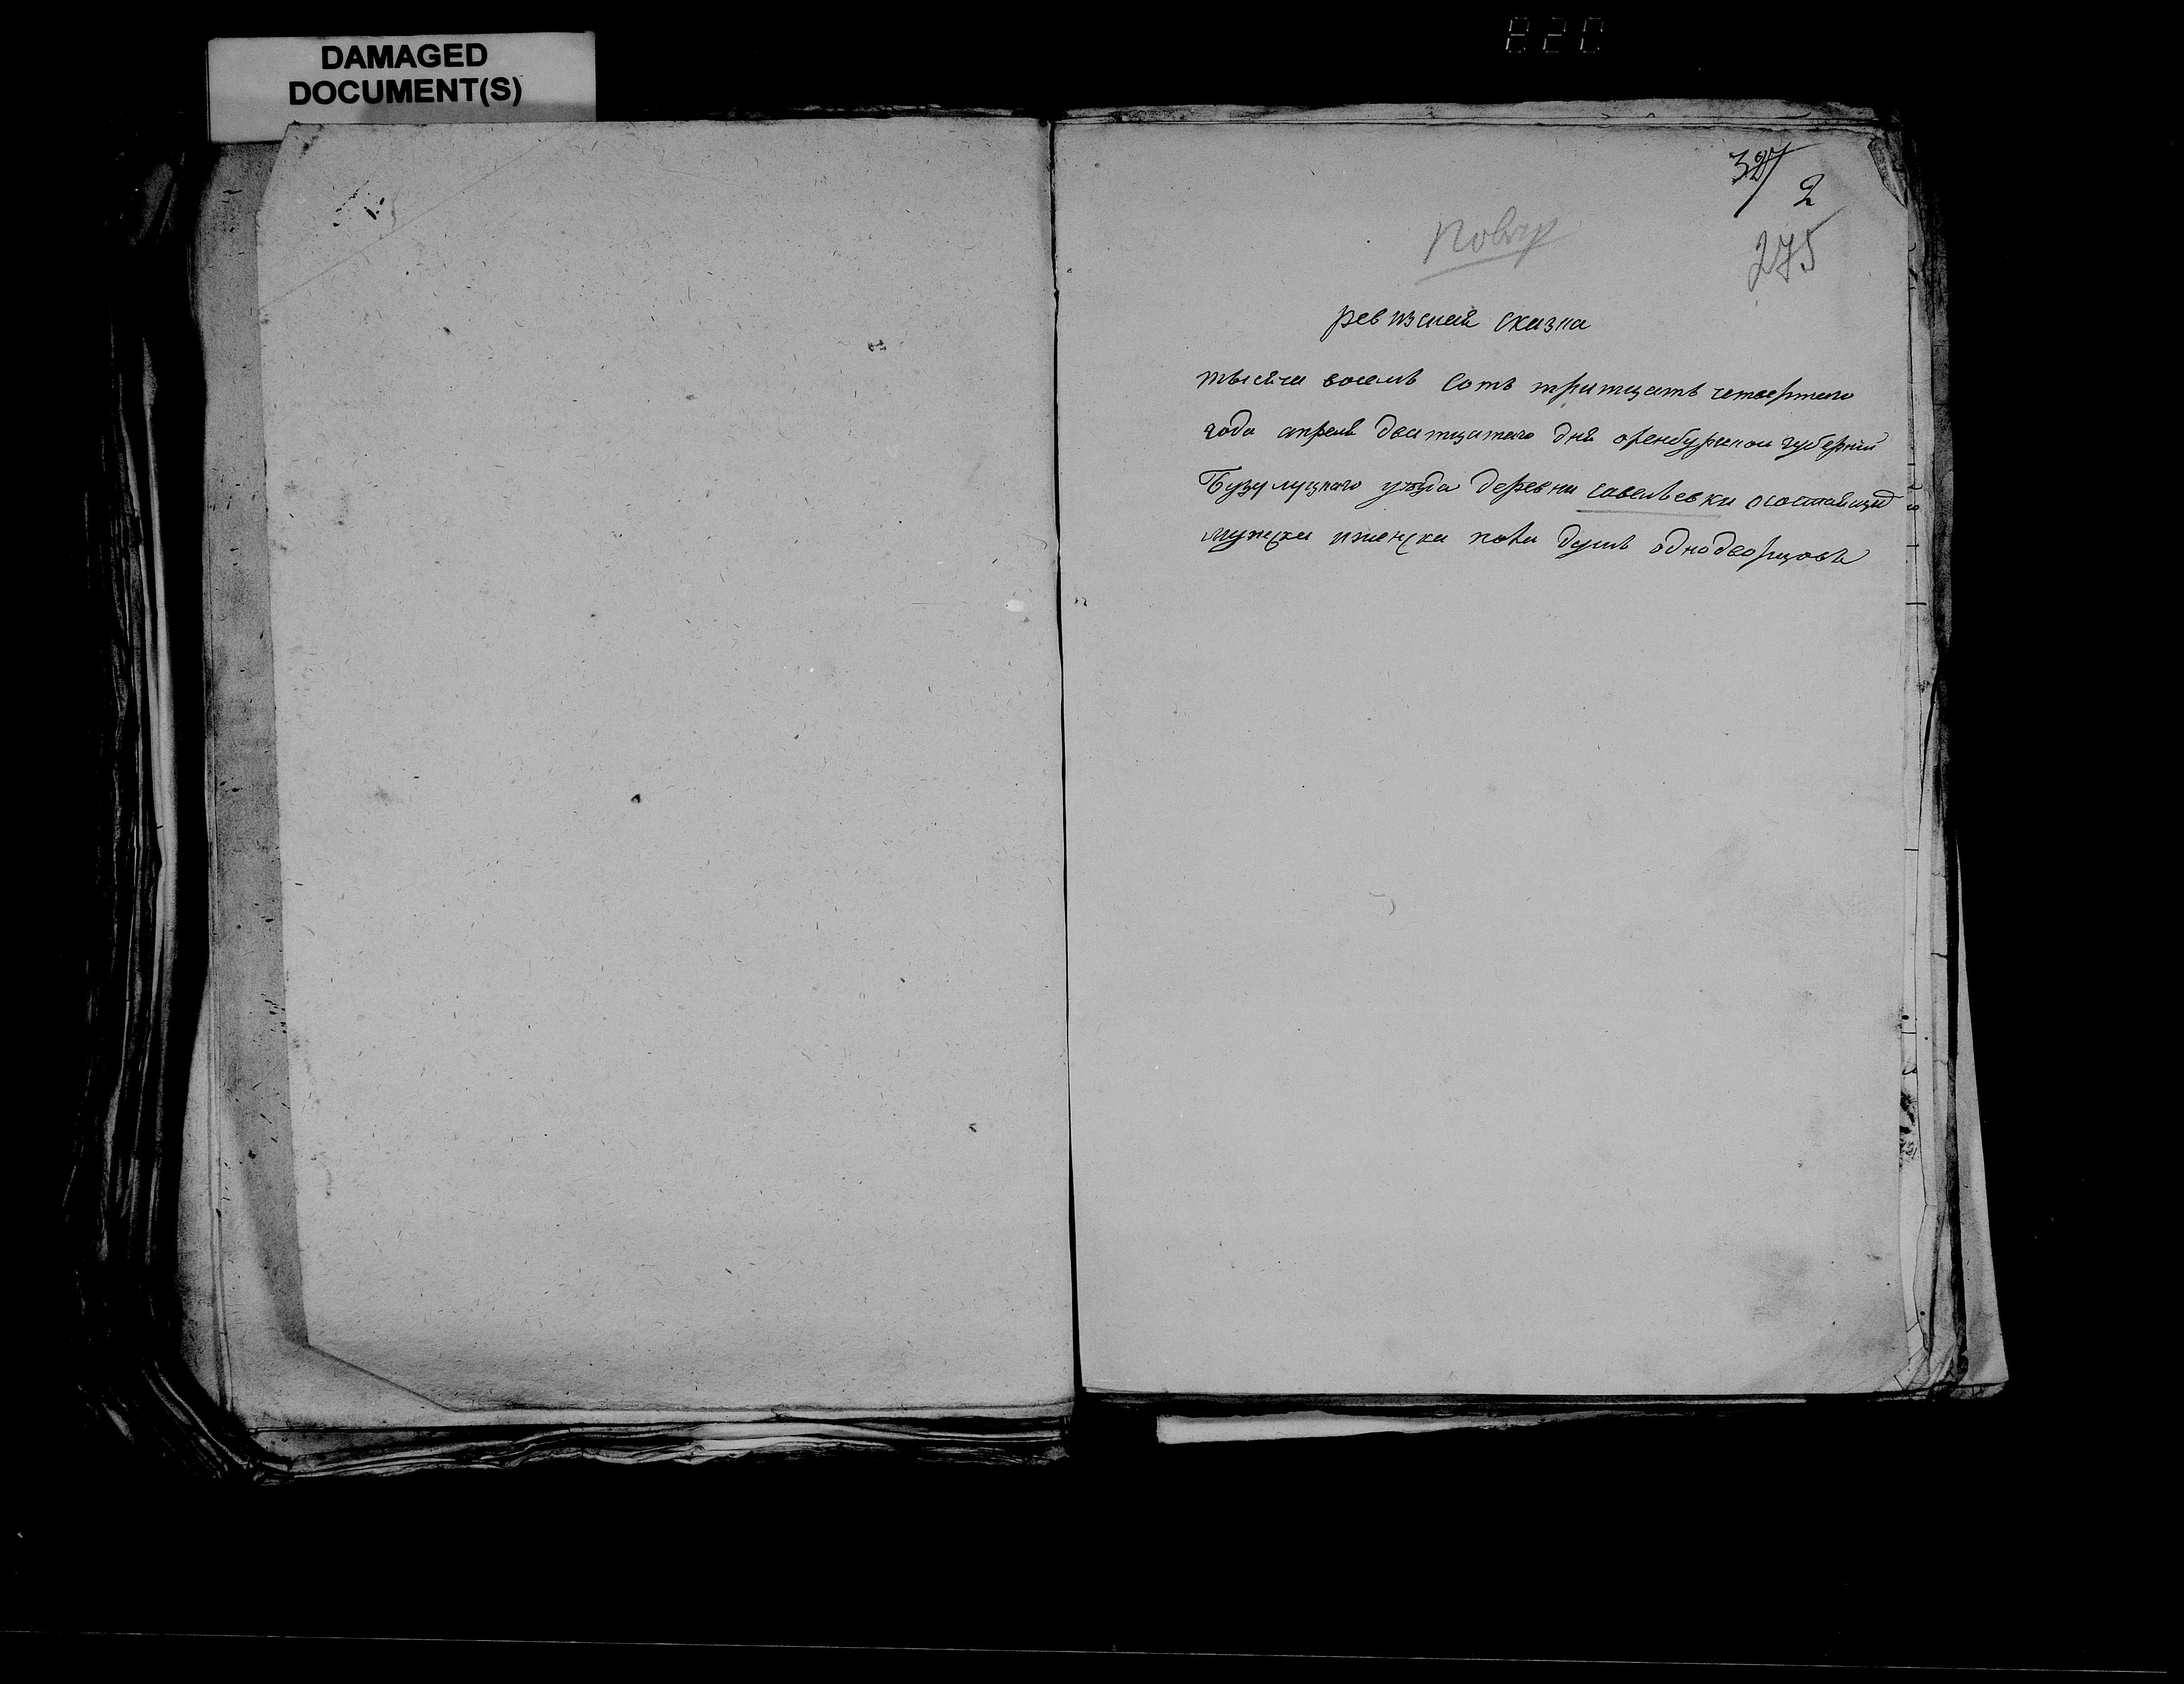 DAMAGED
DOCUMENT(S)
820
327
2
275
ревизская сказка
тысяча восемь сотъ тритцать четвертаго
года апреля дватцатаго дня оренбурской губернии
Бузулуцкаго уезда деревни савельевки осостоящид
мужеска иженска пола душъ однодворцовъ